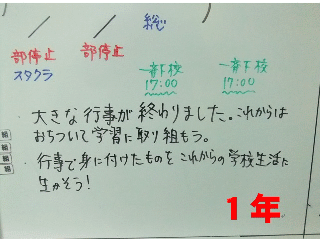 総ぐ
部停止 部停止
スタクラ
一斉下校 一斉下校
17:00 17:00
・大きな行事が終わりました。これからは
おちついて学習に取り組もう。
・行事で身に付けたものをこれからの学校生活に
生かそう!
1年